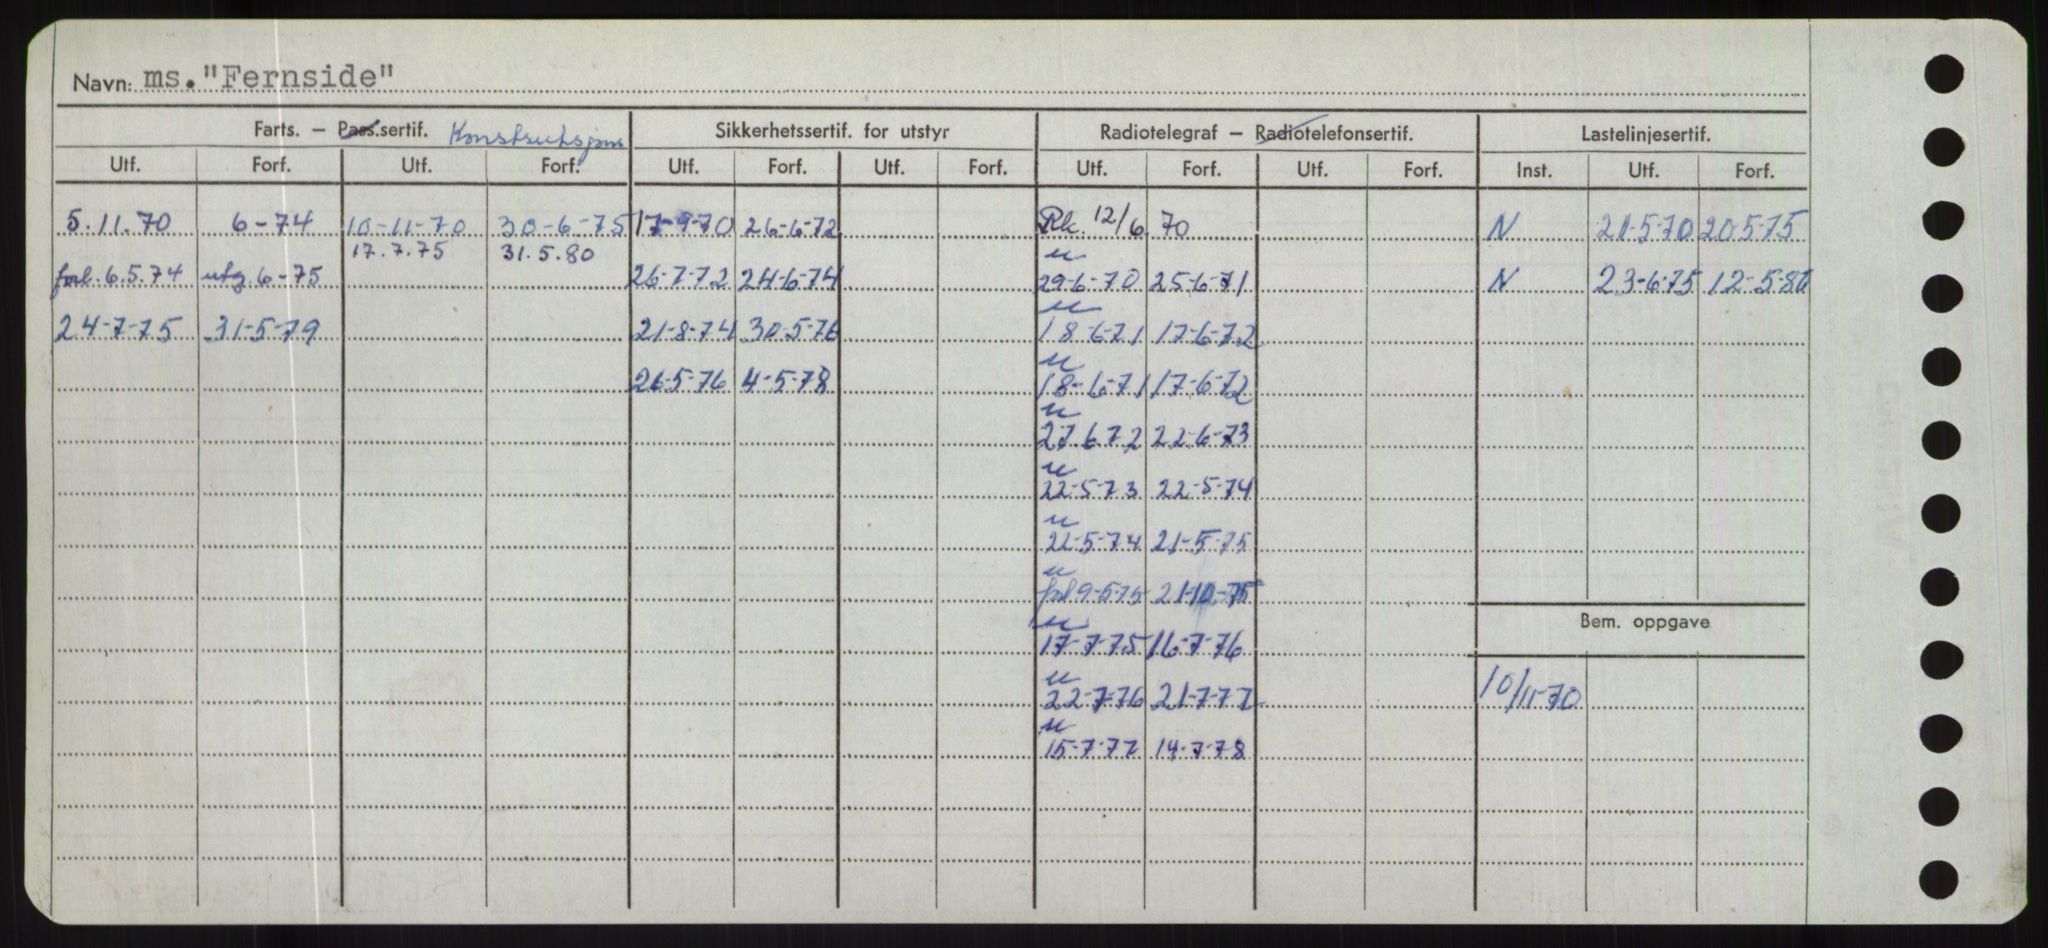 Navn: ms."Fernside"
Farts. – Pass.sertif. Konstruksjons Sikkerhetssertif. for utstyr Radiotelegraf – Radiotelefonsertif. Lastelinjesertif.
Utf. Forf. Utf. Forf. Utf. Forf. Utf. Forf. Utf. Forf. Utf. Forf. Inst. Utf. Forf.
5.11.70 6-74 10-11-70 30-6-75 17-9-70 26-6-72 12/6 70 N 21-5-70 20-5-75
17.7.75 31.5.80 u
forl. 6.5.74 utg 6-75 26-7-72 24-6-74 29-6-70 25-6-71 N 23-6-75 12-5-80
u
24-7-75 31-5-79 21-8-74 30-5-76 18-6-71 17-6-72
u
26-5-76 4-5-78 18-6-71 17-6-72
u
27.6.72 22-6-73
u
22-5-73 22-5-74
u
22-5-74 21-5-75
u
forl 9-5-75 21-10-75
u
Bem. oppgave
17-7-75 16-7-76
u
22-7-76 21-7-77 10/11-70
u
15-7-77 14-7-78